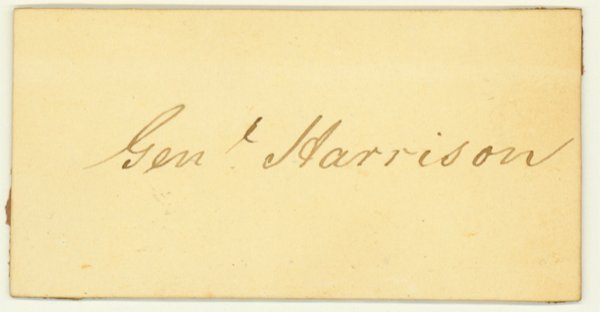 Genl. Harrison